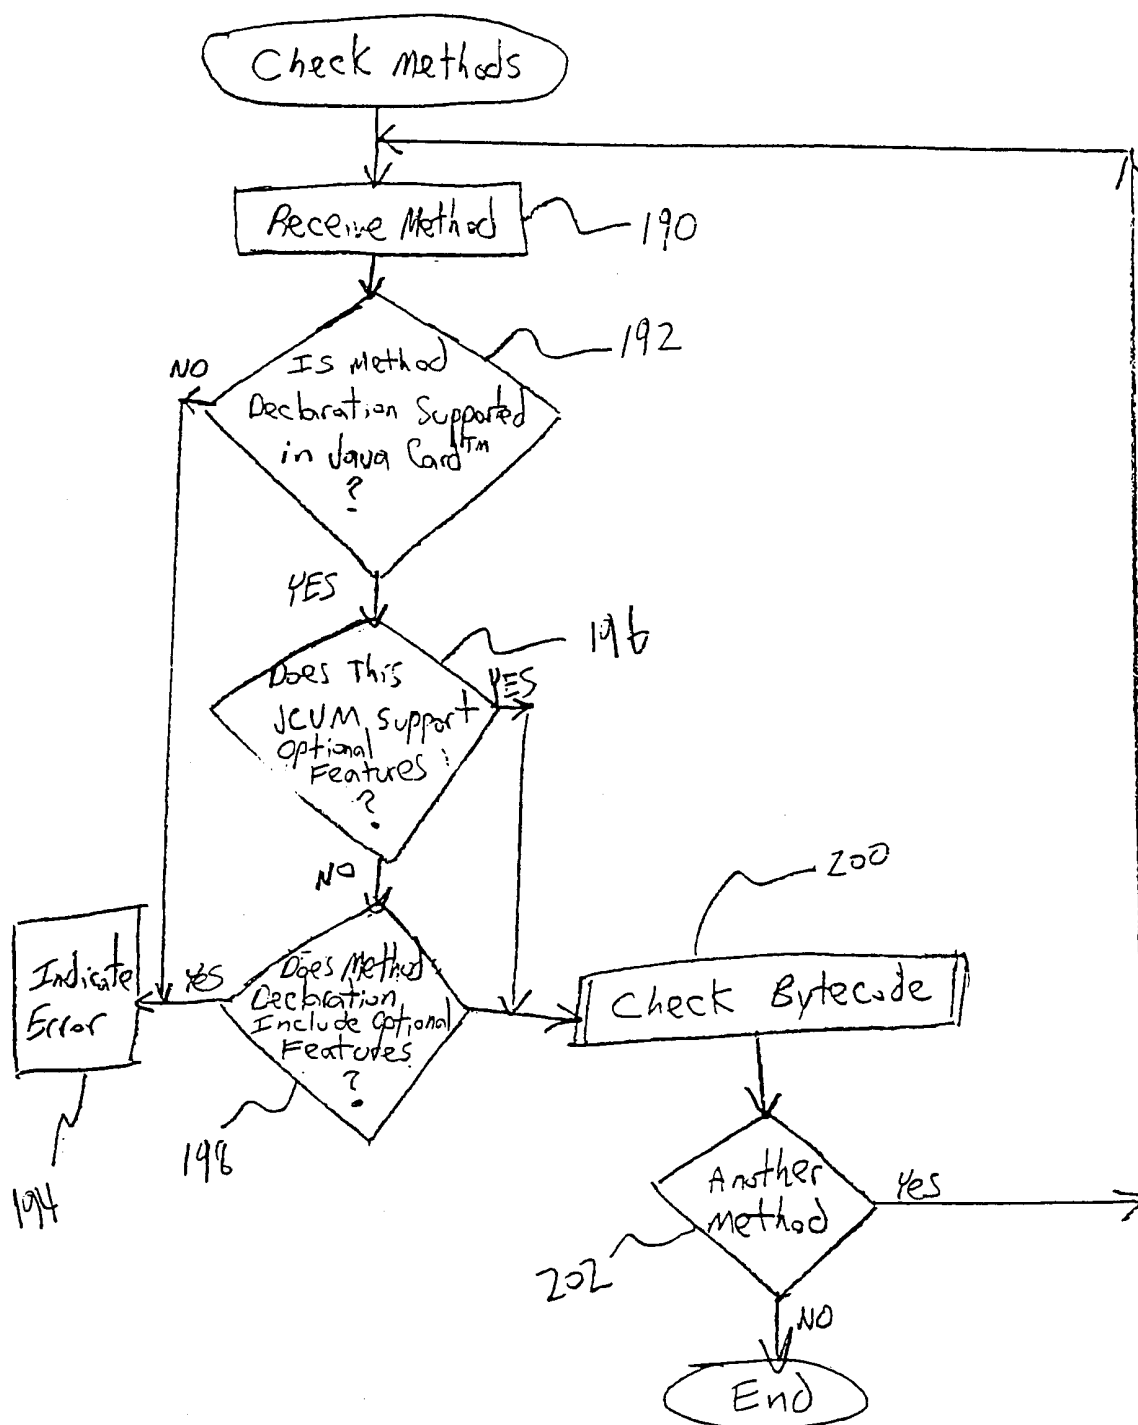 Check Methods
Receive Method
190
192
NO
Is Method
Declaration Supported
in Java Card™
?
YES
196
Does This
YES
JCVM Support
Optional
Features
?
NO
200
Indicate
Error
Yes
Does Method
Declaration
Include Optional
Features
?
Check Bytecode
198
194
Another
Method
Yes
202
NO
End